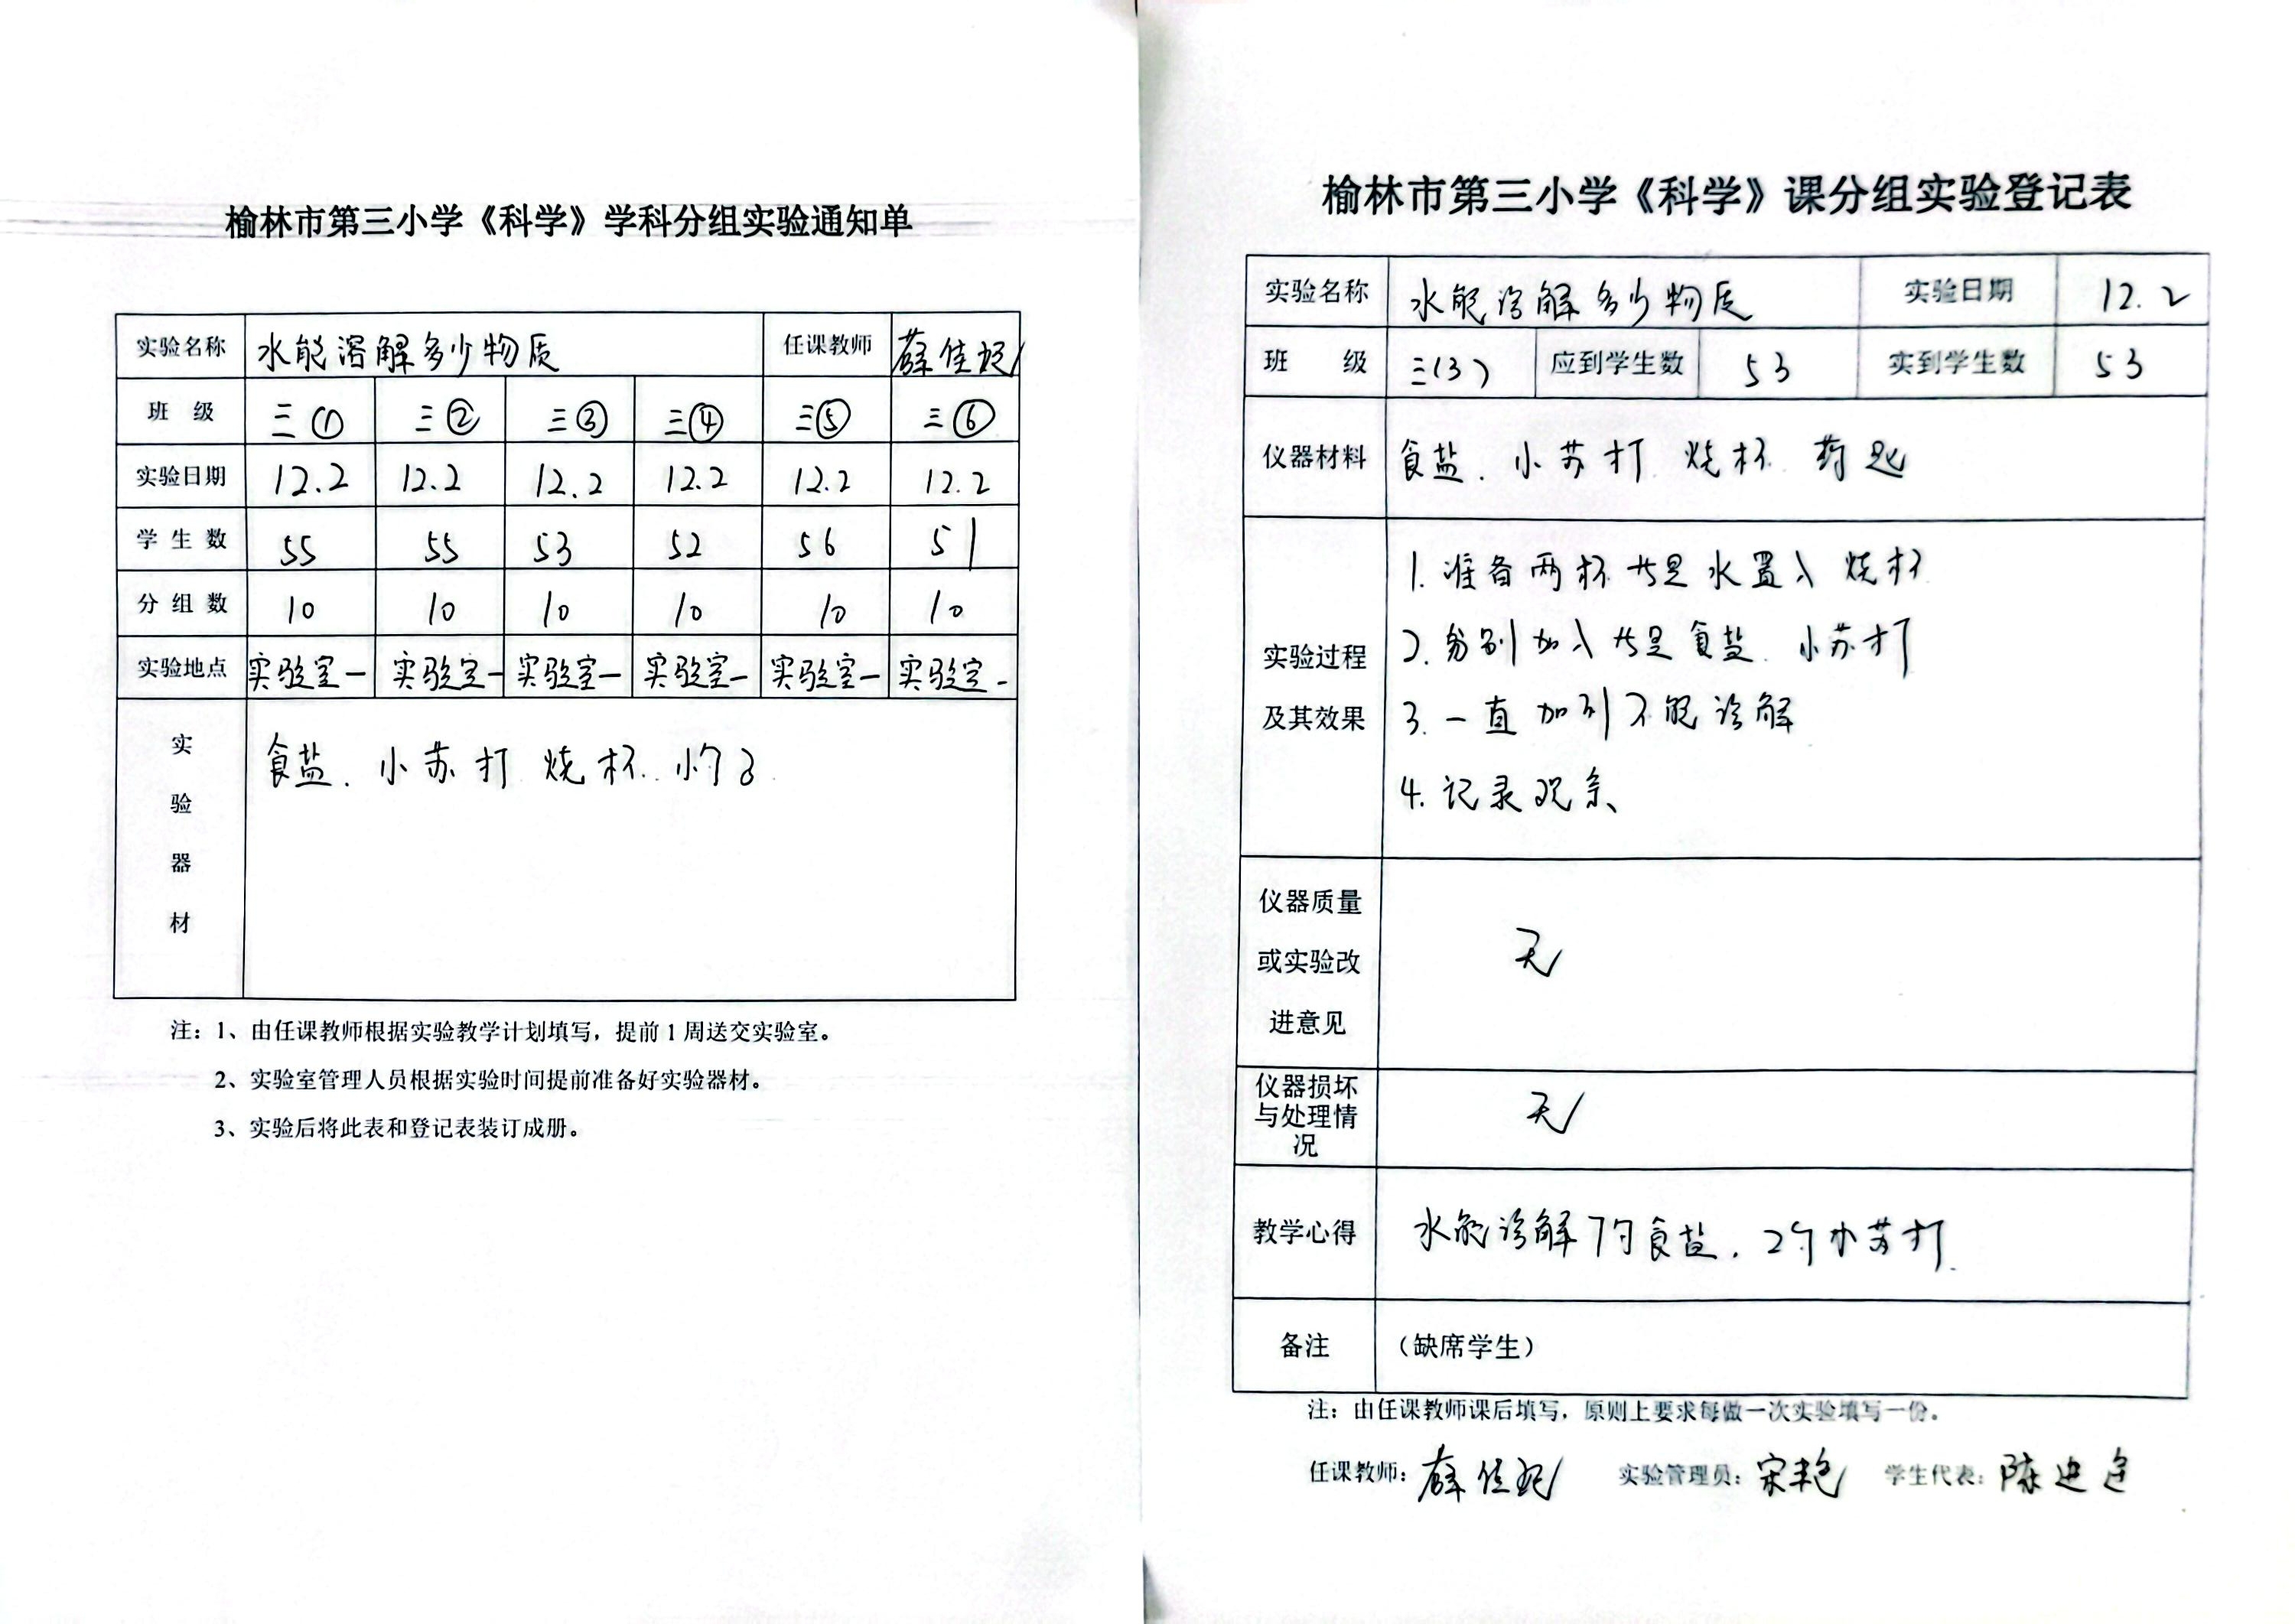 榆林市第三小学《科学》学科分组实验通知单
实验名称 水能溶解多少物质 任课教师 薛佳妮
班 级 三① 三② 三③ 三④ 三⑤ 三⑥
实验日期 12.2 12.2 12.2 12.2 12.2 12.2
学 生 数 55 55 53 52 56 51
分 组 数 10 10 10 10 10 10
实验地点 实验室一 实验室一 实验室一 实验室一 实验室一 实验室一
实验器材 食盐.小苏打 烧杯.
注:1、由任课教师根据实验教学计划填写,提前1周送交实验室。
2、实验室管理人员根据实验时间提前准备好实验器材。
3、实验后将此表和登记表装订成册。
榆林市第三小学《科学》课分组实验登记表
实验名称 水能溶解多少物质 实验日期 12.2
班 级 三(3) 应到学生数 53 实到学生数 53
仪器材料 食盐.小苏打 烧杯 药匙
实验过程及其效果
1.准备两杯 水置入 烧杯
2.分别加入 食盐.小苏打
3.一直加到不能溶解
4.记录现象
仪器质量或实验改进意见 无
仪器损坏与处理情况 无
教学心得 水能溶解7勺食盐.2勺小苏打.
备注 (缺席学生)
注:由任课教师课后填写,原则上要求每做一次实验填写一份。
任课教师:薛佳妮 实验管理员:宋艳 学生代表:陈